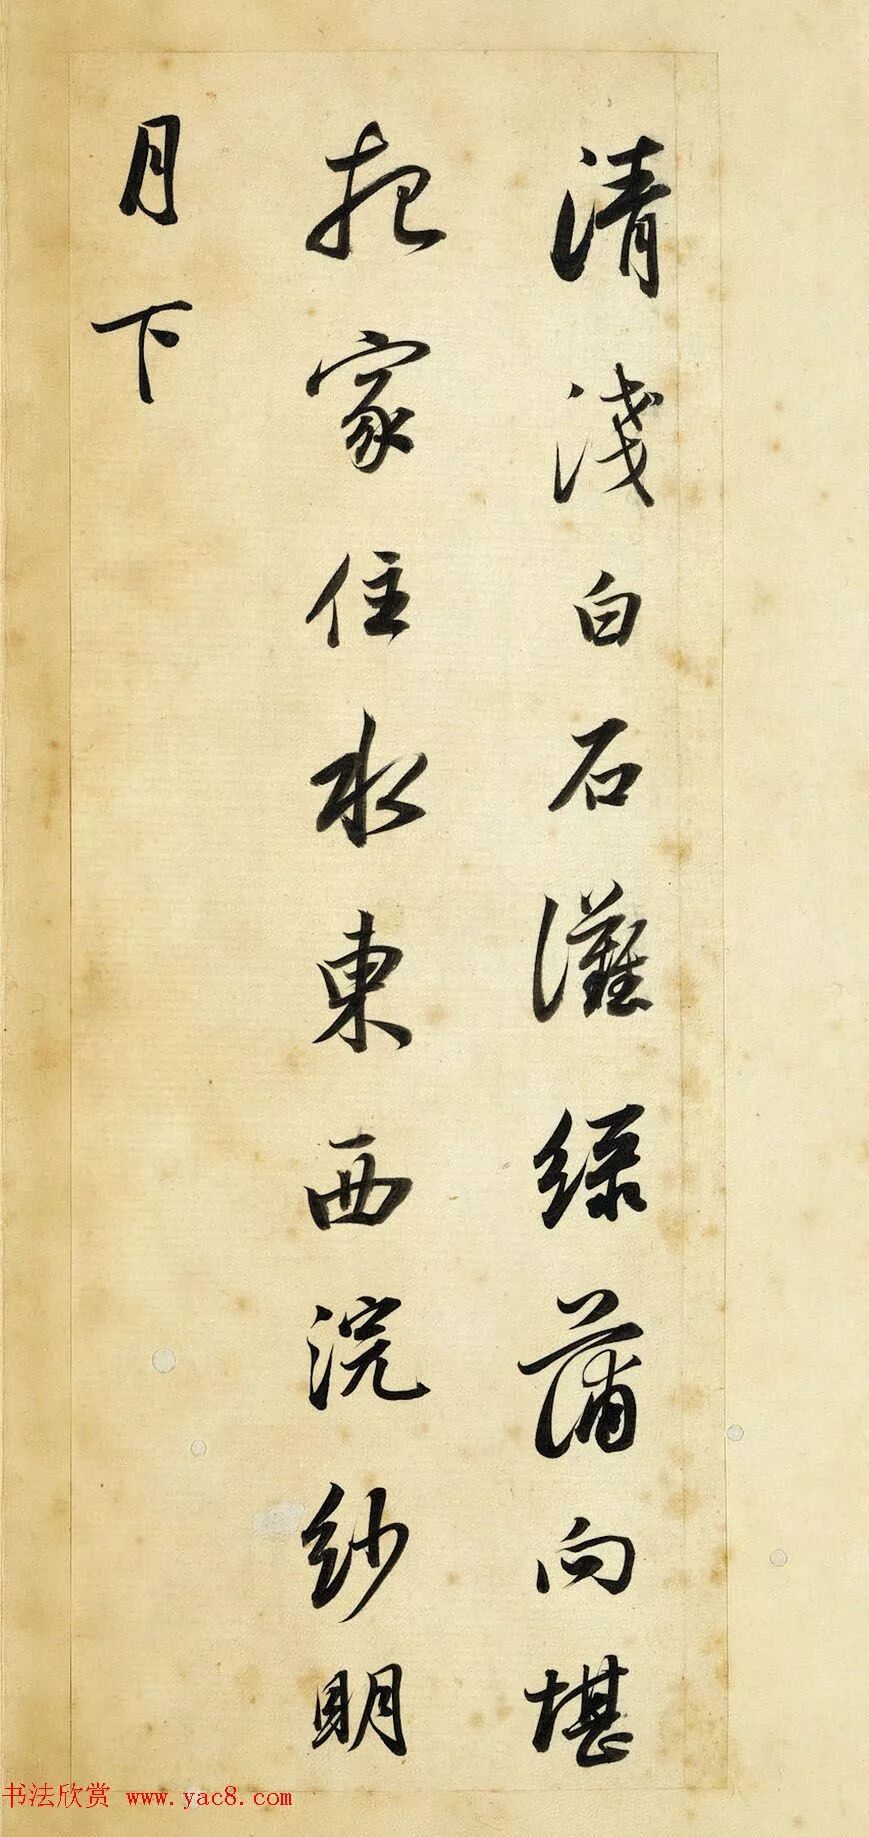 清淺白石灘綠蒲向堪
把家住水東西浣紗明
月下
书法欣赏 www.yac8.com